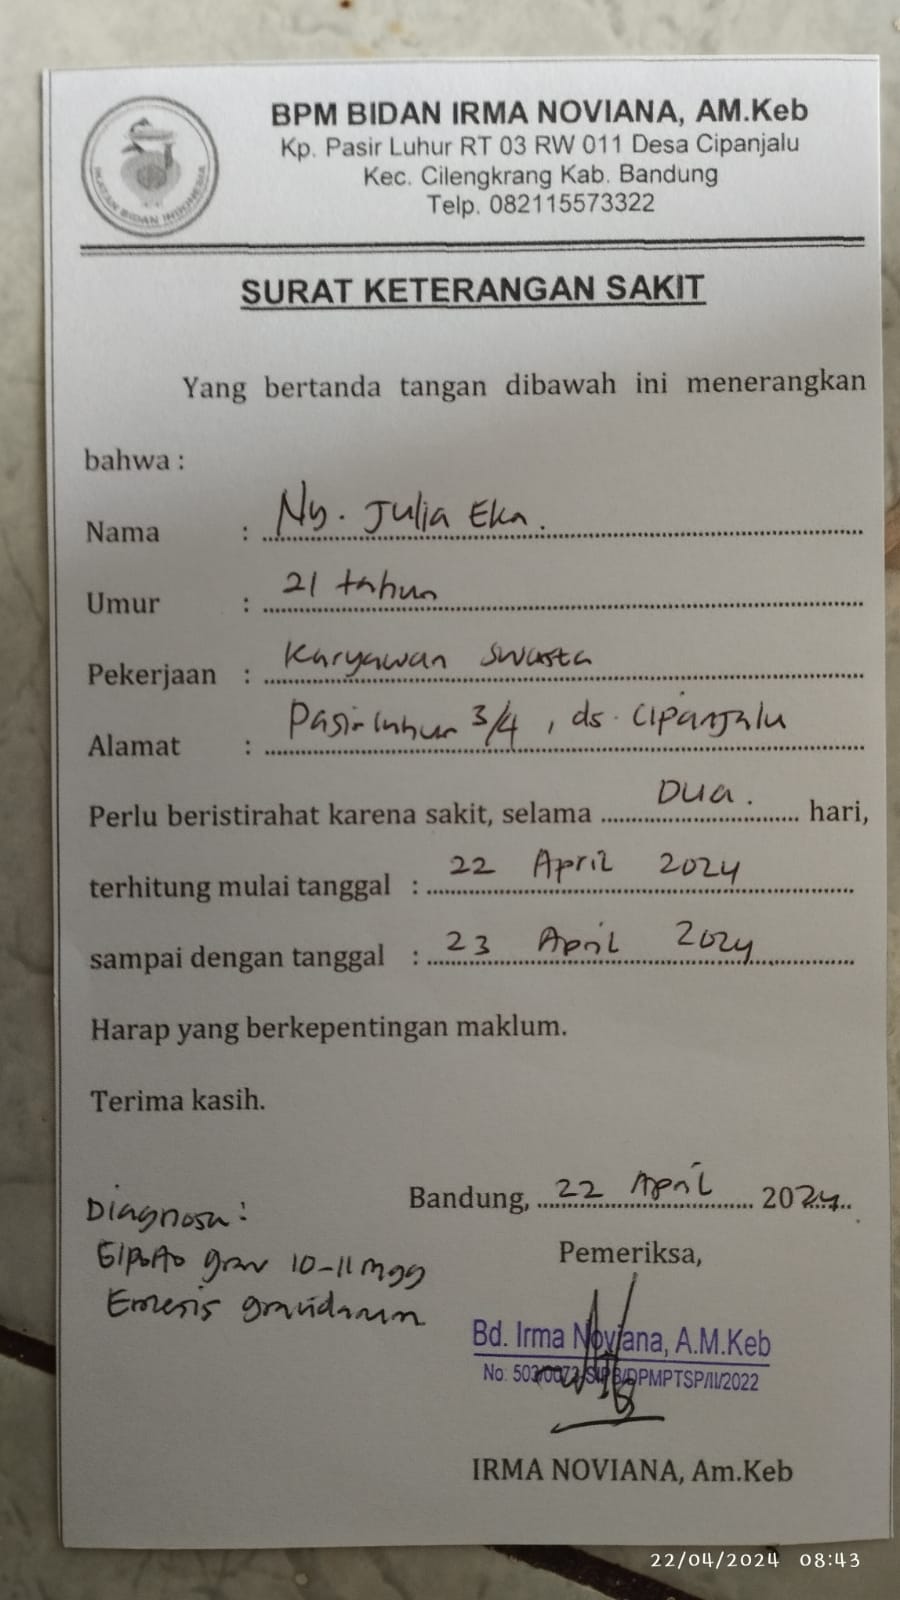 BPM BIDAN IRMA NOVIANA, AM.Keb
Kp. Pasir Luhur RT 03 RW 011 Desa Cipanjalu
Kec. Cilengkrang Kab. Bandung
Telp. 082115573322
IKATAN BIDAN INDONESIA
SURAT KETERANGAN SAKIT
Yang bertanda tangan dibawah ini menerangkan
bahwa :
Nama : Ny. Julia Eka.
Umur : 21 tahun
Pekerjaan : Karyawan swasta
Alamat : Pasir luhur 3/4, ds. Cipanjalu
Perlu beristirahat karena sakit, selama Dua. hari,
terhitung mulai tanggal : 22 April 2024
sampai dengan tanggal : 23 April 2024
Harap yang berkepentingan maklum.
Terima kasih.
Bandung, 22 April 2024
Diagnosa :
Pemeriksa,
G1P0A0 grav 10-11 mgg
Emesis gravidarum
Bd. Irma Noviana, A.M.Keb
No: 503/0073-SIPB/DPMPTSP/II/2022
IRMA NOVIANA, Am.Keb
22/04/2024 08:43